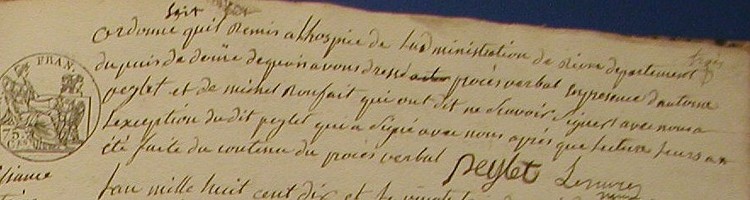 soit
ordonné quil Remis a lhospice de l'administration de notre departement
du puis de dome de quoi avons dressé procès verbal En presence d'antoine
peglet et de michel Ronfait qui ont dit ne Scavoir Signer avec nous a
Lexception dudit peglet qui a Signé avec nous après que lecture leurs a
été faite du contenu du procès verbal peglet
FRAN
75
C
L'an mille huit cent dix et le